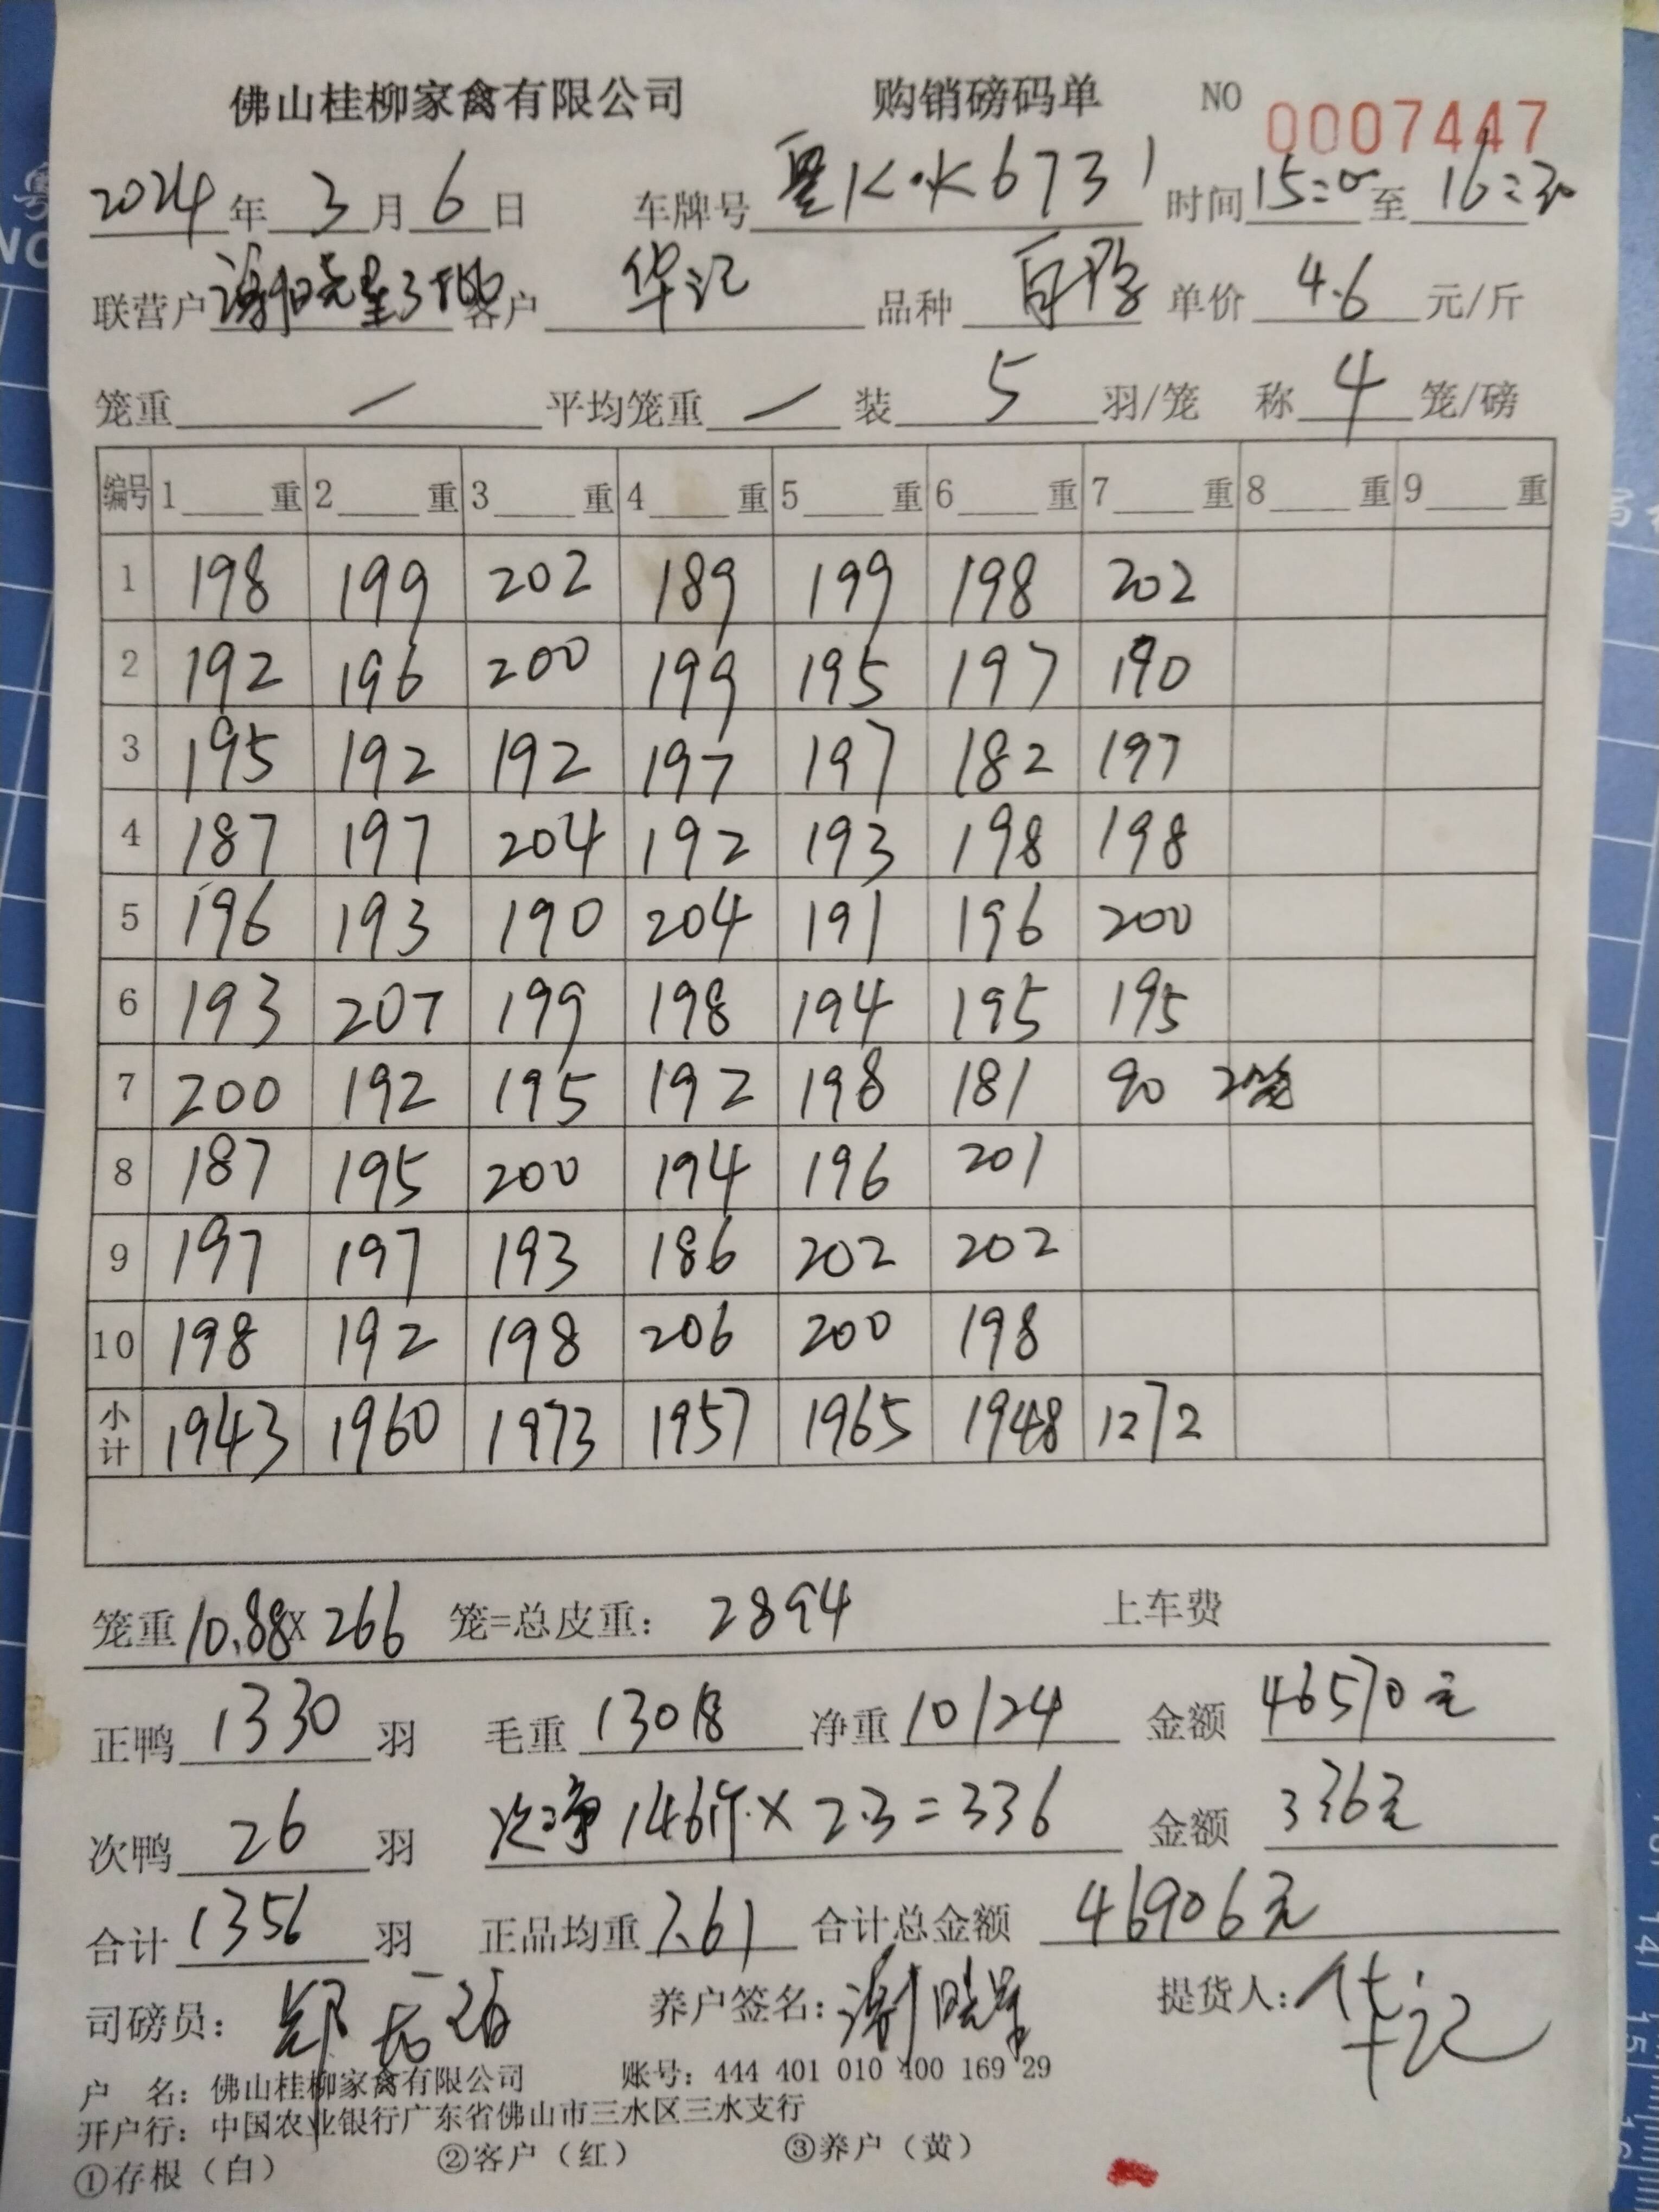 佛山桂柳家禽有限公司 购销磅码单 NO 0007447
2024年3月6日 车牌号 K·K6731 时间15:00至16:30
联营户 谢晓星 客户 华记 品种 单价 4.6 元/斤
笼重 — 平均笼重 — 装 5 羽/笼 称 4 笼/磅
编号 1 重 2 重 3 重 4 重 5 重 6 重 7 重 8 重 9 重
1 198 199 202 189 199 198 202
2 192 196 200 199 195 197 190
3 195 192 192 197 197 182 197
4 187 197 204 192 193 198 198
5 196 193 190 204 191 196 200
6 193 207 199 198 194 195 195
7 200 192 195 192 198 181 90 2笼
8 187 195 200 194 196 201
9 197 197 193 186 202 202
10 198 192 198 206 200 198
小计 1943 1960 1973 1957 1965 1948 1272
笼重10.88X266 笼=总皮重: 2894 上车费
正鸭 1330 羽 毛重 13018 净重 10124 金额 46570元
次鸭 26 羽 次净146斤×2.3=336 金额 336元
合计 1356 羽 正品均重 7.61 合计总金额 46906元
司磅员: 郑 养户签名: 谢晓星 提货人: 华记
户 名: 佛山桂柳家禽有限公司 账号: 444 401 010 400 169 29
开户行: 中国农业银行广东省佛山市三水区三水支行
①存根（白） ②客户（红） ③养户（黄）